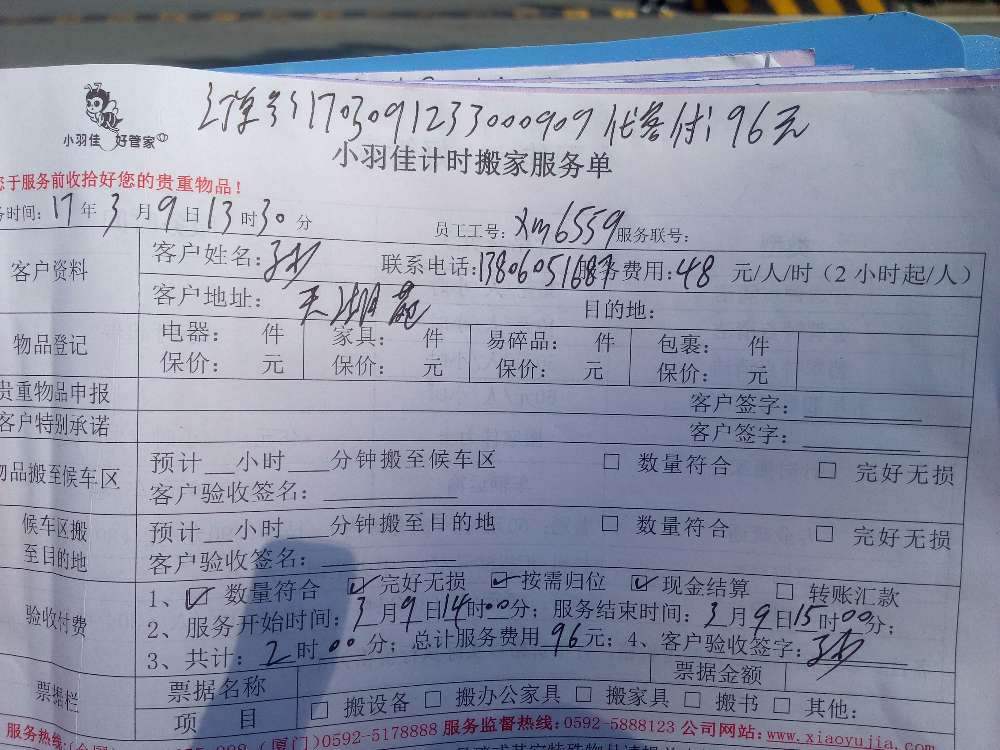 订单号1703091233000909 代客付:96元
小羽佳 好管家
小羽佳计时搬家服务单
您于服务前收拾好您的贵重物品!
务时间:17年3月9日13时30分 员工工号:xm6559 服务联号:
客户资料 客户姓名: 联系电话:13806051687 服务费用:48元/人/时(2小时起/人)
客户地址:天湖苑 目的地:
物品登记 电器: 件 家具: 件 易碎品: 件 包裹: 件
保价: 元 保价: 元 保价: 元 保价: 元
贵重物品申报 客户签字:
客户特别承诺 客户签字:
物品搬至候车区 预计__小时__分钟搬至候车区 □ 数量符合 □ 完好无损
客户验收签名:
候车区搬至目的地 预计__小时__分钟搬至目的地 □ 数量符合 □ 完好无损
客户验收签名:
验收付费 1、☑ 数量符合 ☑ 完好无损 ☑ 按需归位 ☑ 现金结算 □ 转账汇款
2、服务开始时间:3月9日14时00分;服务结束时间:3月9日15时00分;
3、共计:2时00分;总计服务费用96元;4、客户验收签字:
票据栏 票据名称 票据金额
项 目 □ 搬设备 □ 搬办公家具 □ 搬家具 □ 搬书 □ 其他:
服务热线: (厦门)0592-5178888 服务监督热线:0592-5888123 公司网站:www.xiaoyujia.com